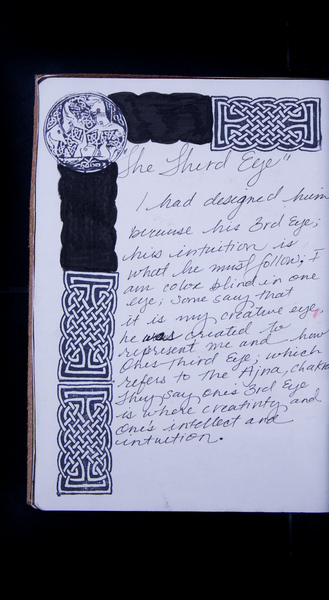 "The Third Eye"
I had designed him
because his 3rd Eye;
his intuition is
what he must follow. I
am color blind in one
eye; some say that
it is my creative eye,
he was created to
represent me and how
One's Third Eye; which
refers to the Ajna, chakra
They say one's 3rd Eye
is where creativity and
One's intellect and
intuition.